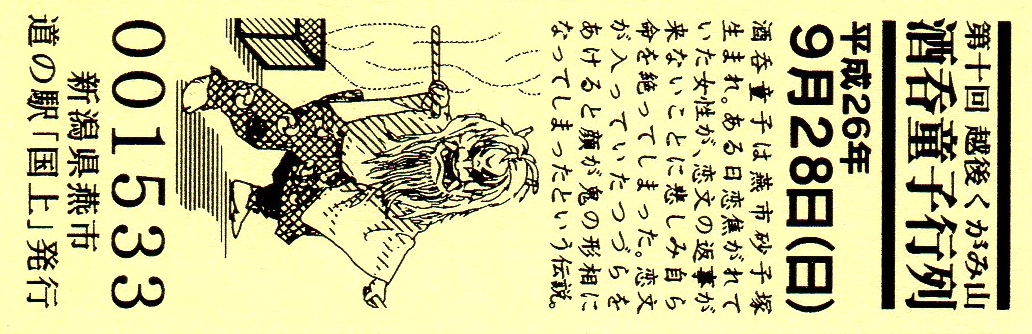 第十回 越後くがみ山
酒呑童子行列
平成26年
9月28日(日)
酒呑童子は燕市砂子塚
生まれ。ある日恋焦がれて
いた女性が、恋文の返事が
来ないことに悲しみ自ら
命を絶ってしまった。恋文
が入っていたつづらを
あけると顔が鬼の形相に
なってしまったという伝説。
001533
新潟県燕市
道の駅「国上」発行